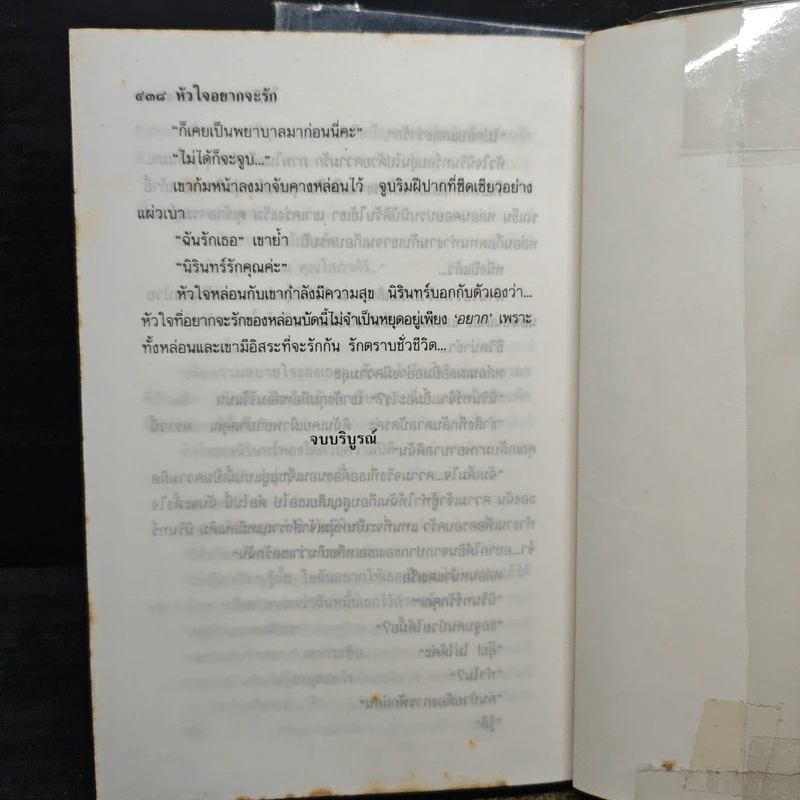 ๔๓๘ หัวใจอยากจะรัก
“ก็เคยเป็นพยาบาลมาก่อนนี่คะ”
“ไม่ได้ก็จะจูบ...”
เขาก้มหน้าลงมาจับคางหล่อนไว้ จูบริมฝีปากที่ซีดเซียวอย่าง
แผ่วเบา
“ฉันรักเธอ” เขาย้ำ
“นิรินทร์รักคุณค่ะ”
หัวใจหล่อนกับเขากำลังมีความสุข นิรินทร์บอกกับตัวเองว่า...
หัวใจที่อยากจะรักของหล่อนบัดนี้ไม่จำเป็นหยุดอยู่เพียง ‘อยาก’ เพราะ
ทั้งหล่อนและเขามีอิสระที่จะรักกัน รักตราบชั่วชีวิต...
จบบริบูรณ์